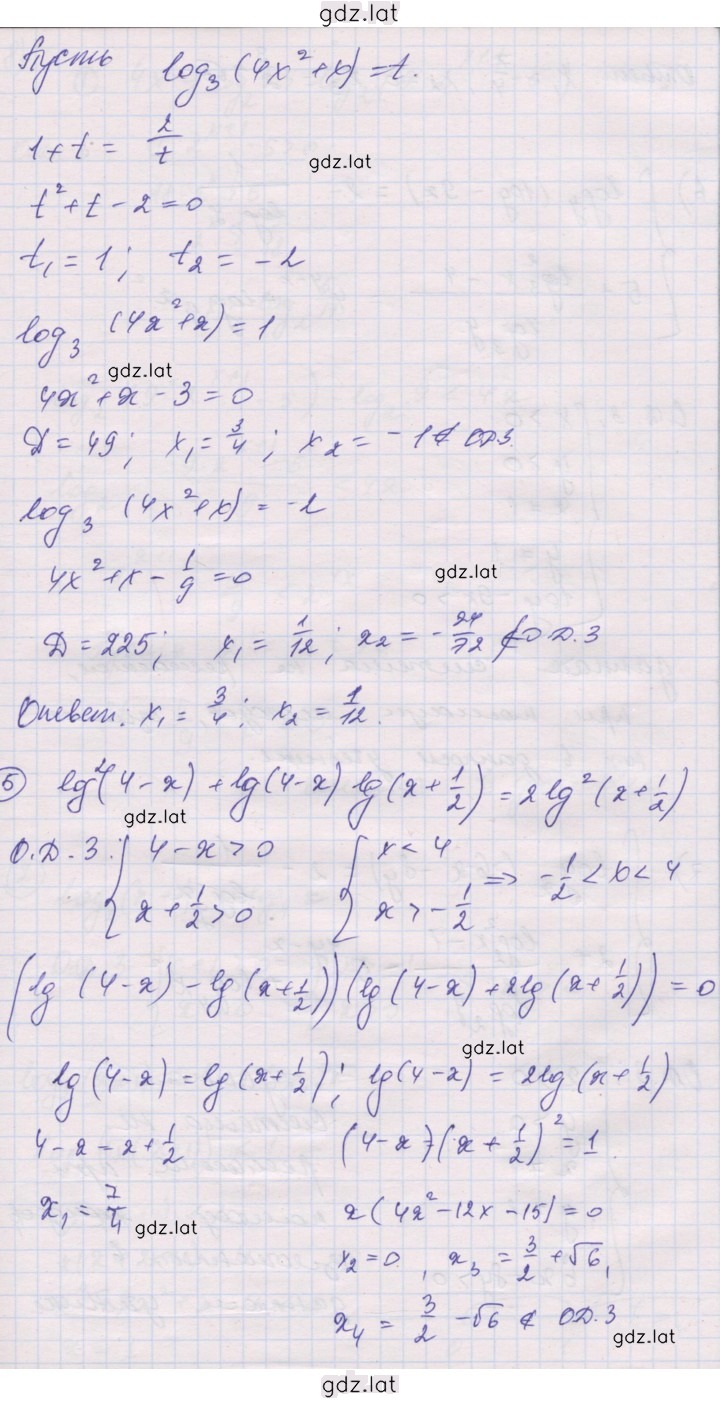 gdz.lat
Пусть log₃(4x²+x)=t.
1+t = 2/t
gdz.lat
t²+t-2=0
t₁=1; t₂=-2
log₃ (4x²+x)=1
gdz.lat
4x²+x-3=0
Д=49; x₁=3/4; x₂=-1∉ ОДЗ.
log₃ (4x²+x)=-2
gdz.lat
4x²+x-1/9=0
Д=225; x₁=1/12; x₂=-24/72 ∉О.Д.З
Ответ: x₁=3/4; x₂=1/12.
5) lg²(4-x)+lg(4-x)lg(x+1/2)=2lg²(x+1/2)
gdz.lat
О.Д.З: { 4-x>0 { x<4
x+1/2>0 x>-1/2 => -1/2<x<4
(lg(4-x)-lg(x+1/2))(lg(4-x)+2lg(x+1/2))=0
gdz.lat
lg(4-x)=lg(x+1/2); lg(4-x)=2lg(x+1/2)
4-x=x+1/2 (4-x)(x+1/2)²=1
x₁=7/4 x(4x²-12x-15)=0
gdz.lat
x₂=0, x₃=3/2+√6,
x₄=3/2-√6 ∉ ОД.З
gdz.lat
gdz.lat